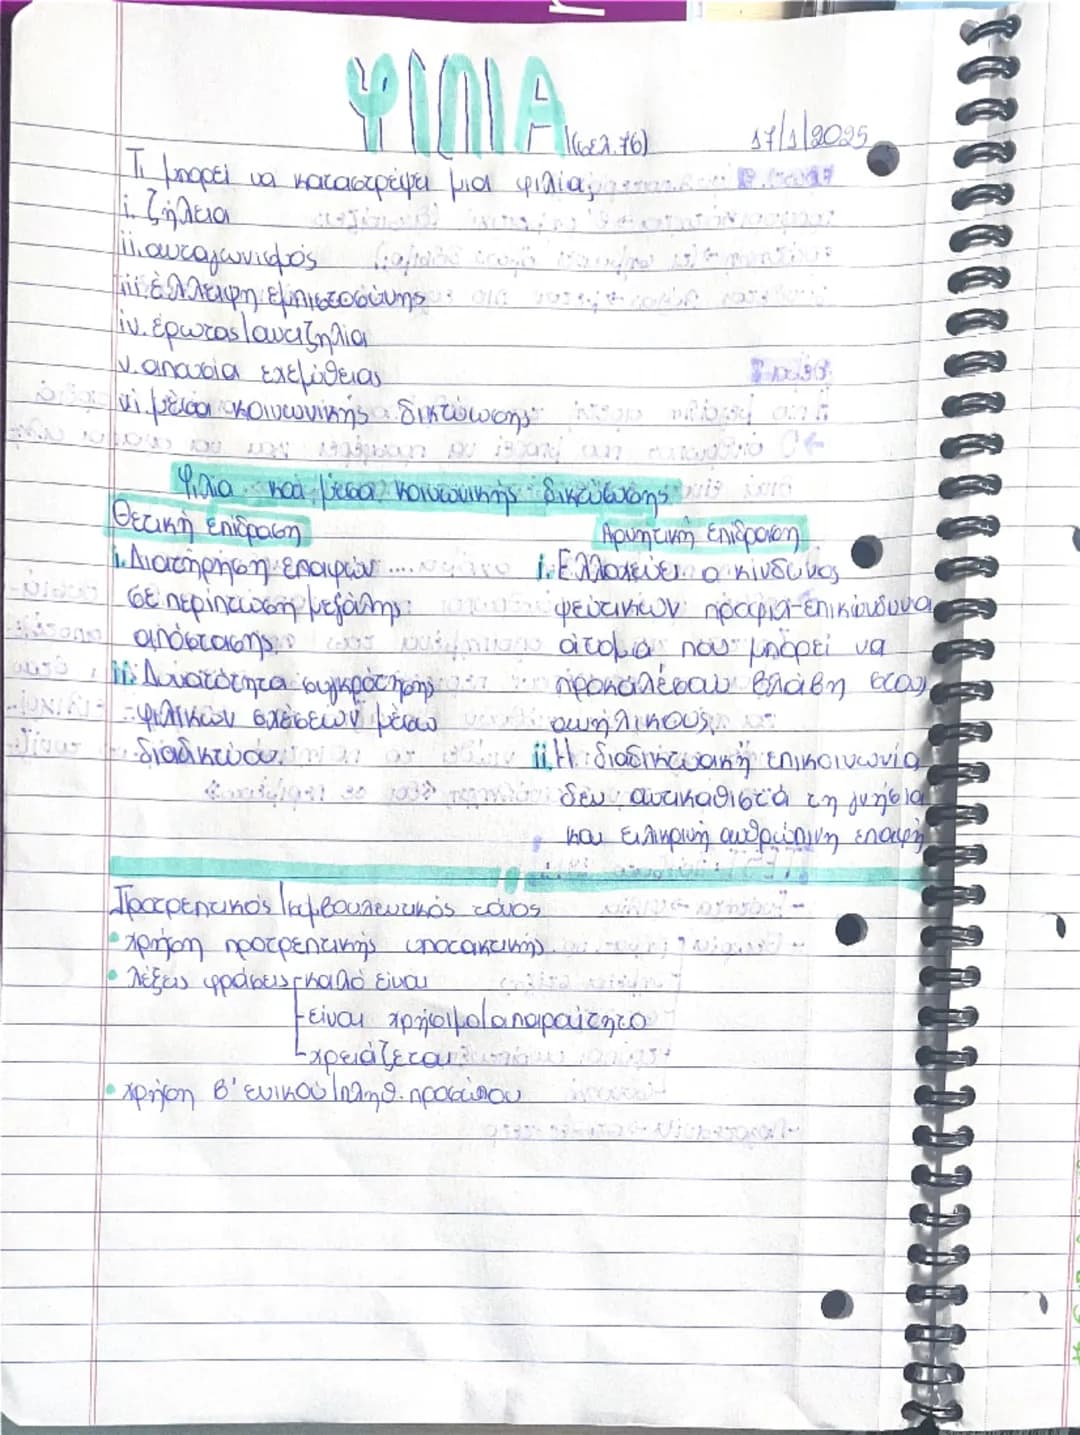 ΦΙΛΙΑ (σελ.76) 17/1/2025
Τι μπορεί να καταστρέψει μια φιλία;
i. ζήλεια
ii. ανταγωνισμός
iii. έλλειψη εμπιστοσύνης
iv. έρωτας/αντιζηλία
v. απουσία εχεμύθειας
vi. μέσα κοινωνικής δικτύωσης
Φιλία και μέσα κοινωνικής δικτύωσης
Θετική επίδραση
i. Διατήρηση επαφών
σε περίπτωση μεγάλης
απόστασης
ii. Δυνατότητα συγκρότησης
φιλικών σχέσεων μέσω
διαδικτύου
Αρνητική επίδραση
i. Ελλοχεύει ο κίνδυνος
ψεύτικων προφίλ-επικίνδυνα
άτομα που μπορεί να
προκαλέσουν βλάβη στους
ανήλικους
ii. Η διαδικτυακή επικοινωνία
δεν αντικαθιστά τη γνήσια
και ειλικρινή ανθρώπινη επαφή
Προτρεπτικός/συμβουλευτικός τόνος
• χρήση προτρεπτικής υποτακτικής
• λέξεις φράσεις καλό είναι
είναι χρήσιμο/απαραίτητο
χρειάζεται
• χρήση β' ενικού/πληθ. προσώπου